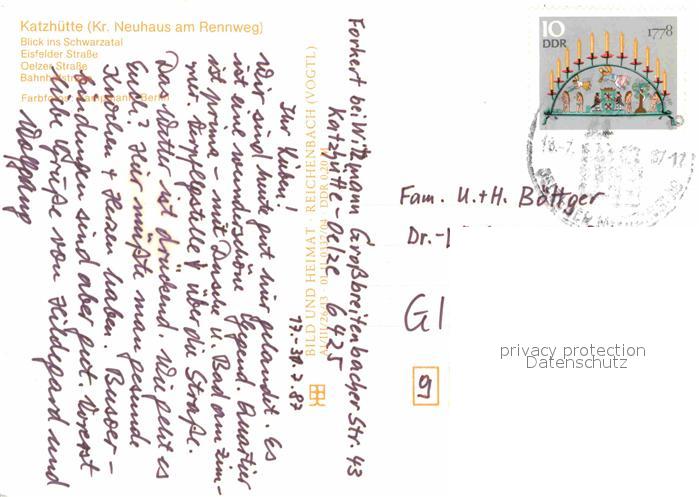 Katzhütte (Kr. Neuhaus am Rennweg)
Blick ins Schwarzatal
Eisfelder Straße
Oelzer Straße
Bahnhofstraße
Farbfotos: Kampmann, Berlin
BILD UND HEIMAT · REICHENBACH (VOGTL)
DDR 0,20 M
Forkert bei Witzmann Großbreitenbacher Str. 43
Katzhütte-Oelze 6425
17.-30.7.87
Ihr Lieben!
Wir sind heute gut hier gelandet. Es
ist eine wunderschöne Gegend. Quartier
ist prima – mit Dusche u. Bad am Zim-
mer. Verpflegstelle über die Straße.
Das Wetter ist drückend. Wie geht es
Euch? Hier müßte man gesunde
Knochen + Herzen haben. Busver-
bindungen sind aber gut. Vorerst
liebe Grüße von Hildegard und
Wolfgang
10
DDR
1778
18.-7. 87-17
Fam. U.+H. Böttger
Dr.-
G1
9
privacy protection
Datenschutz